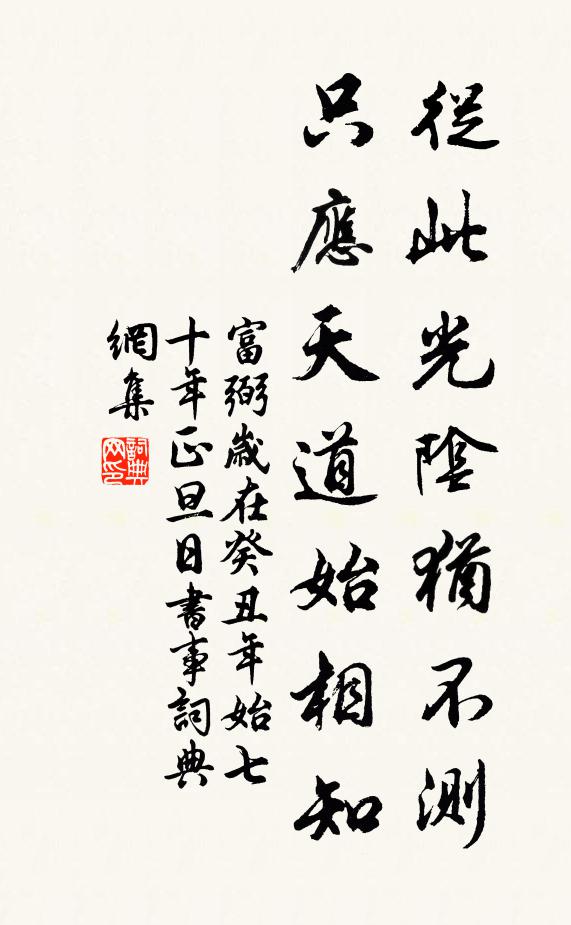 從此光陰猶不測
只應天道始相知
富弼歲在癸丑年始七
十年正旦日書事詞典
網集
詞典
网印